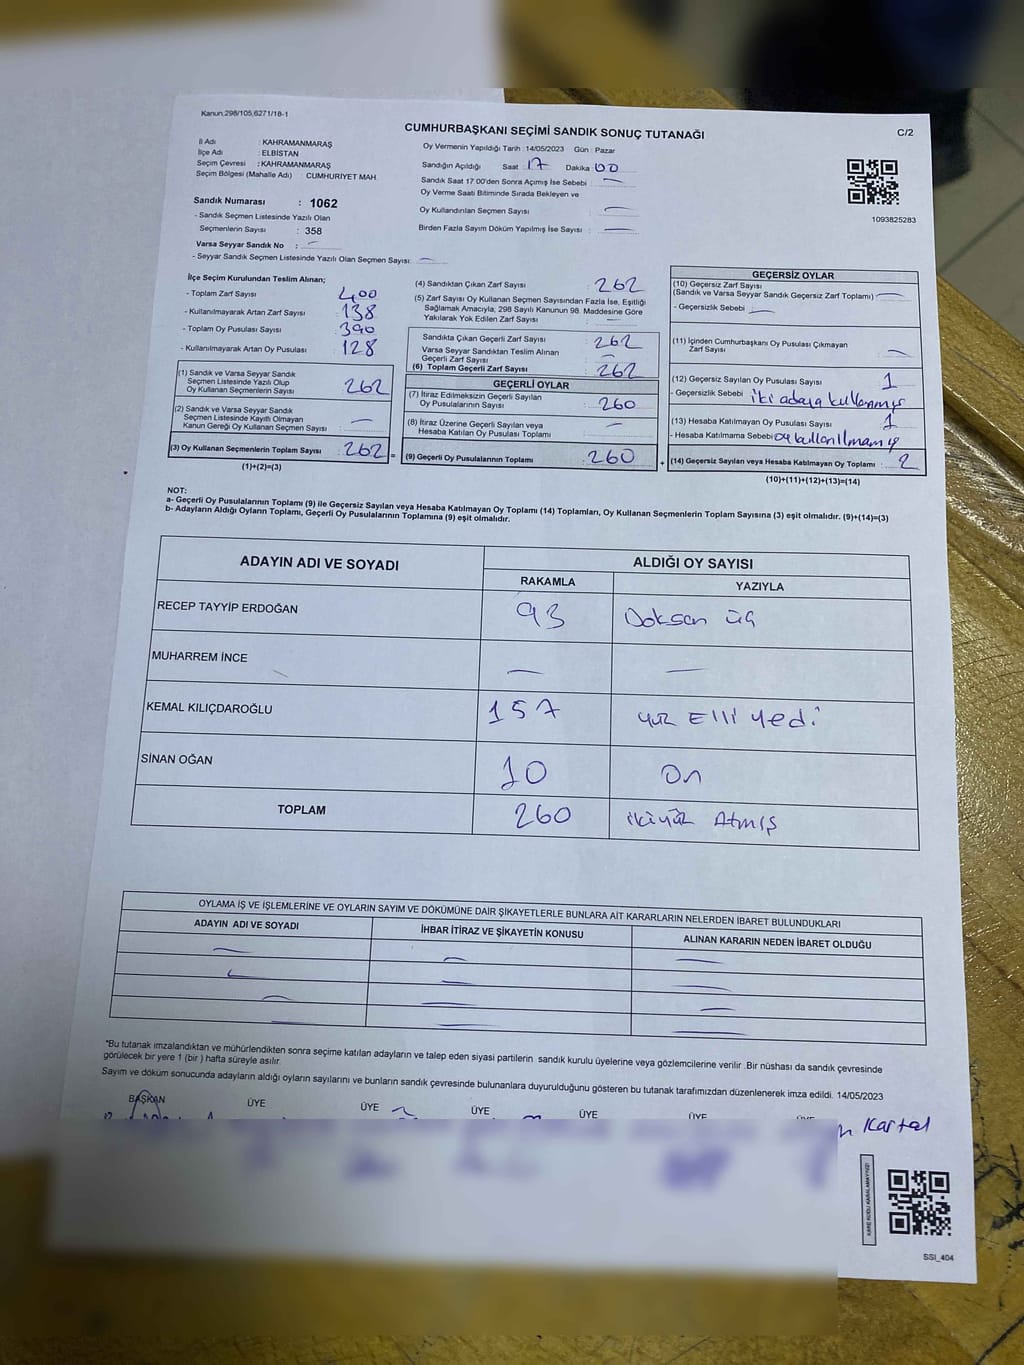 Kanun,298/105,6271/18-1
CUMHURBAŞKANI SEÇİMİ SANDIK SONUÇ TUTANAĞI
C/2
İl Adı : KAHRAMANMARAŞ
İlçe Adı : ELBİSTAN
Seçim Çevresi : KAHRAMANMARAŞ
Seçim Bölgesi (Mahalle Adı) : CUMHURİYET MAH.
Sandık Numarası : 1062
- Sandık Seçmen Listesinde Yazılı Olan
Seçmenlerin Sayısı : 358
Varsa Seyyar Sandık No : —
- Seyyar Sandık Seçmen Listesinde Yazılı Olan Seçmen Sayısı: —
Oy Vermenin Yapıldığı Tarih : 14/05/2023 Gün : Pazar
Sandığın Açıldığı Saat : 17 Dakika : 00
Sandık Saat 17.00'den Sonra Açımış İse Sebebi : —
Oy Verme Saati Bitiminde Sırada Bekleyen ve
Oy Kullandırılan Seçmen Sayısı : —
Birden Fazla Sayım Döküm Yapılmış İse Sayısı : —
1093825283
İlçe Seçim Kurulundan Teslim Alınan;
- Toplam Zarf Sayısı : 400
- Kullanılmayarak Artan Zarf Sayısı : 138
- Toplam Oy Pusulası Sayısı : 390
- Kullanılmayarak Artan Oy Pusulası : 128
(1) Sandık ve Varsa Seyyar Sandık
Seçmen Listesinde Yazılı Olup
Oy Kullanan Seçmenlerin Sayısı : 262
(2) Sandık ve Varsa Seyyar Sandık
Seçmen Listesinde Kayıtlı Olmayan
Kanun Gereği Oy Kullanan Seçmen Sayısı : —
(3) Oy Kullanan Seçmenlerin Toplam Sayısı : 262 =
(1)+(2)=(3)
(4) Sandıktan Çıkan Zarf Sayısı : 262
(5) Zarf Sayısı Oy Kullanan Seçmen Sayısından Fazla İse, Eşitliği
Sağlamak Amacıyla, 298 Sayılı Kanunun 98. Maddesine Göre
Yakılarak Yok Edilen Zarf Sayısı : —
Sandıkta Çıkan Geçerli Zarf Sayısı : 262
Varsa Seyyar Sandıktan Teslim Alınan
Geçerli Zarf Sayısı : —
(6) Toplam Geçerli Zarf Sayısı : 262
GEÇERLİ OYLAR
(7) İtiraz Edilmeksizin Geçerli Sayılan
Oy Pusulalarının Sayısı : 260
(8) İtiraz Üzerine Geçerli Sayılan veya
Hesaba Katılan Oy Pusulası Toplamı : —
(9) Geçerli Oy Pusulalarının Toplamı : 260 +
GEÇERSİZ OYLAR
(10) Geçersiz Zarf Sayısı
(Sandık ve Varsa Seyyar Sandık Geçersiz Zarf Toplamı) : —
- Geçersizlik Sebebi : —
(11) İçinden Cumhurbaşkanı Oy Pusulası Çıkmayan
Zarf Sayısı : —
(12) Geçersiz Sayılan Oy Pusulası Sayısı : 1
- Geçersizlik Sebebi : iki adaya kullanmış
(13) Hesaba Katılmayan Oy Pusulası Sayısı : 1
- Hesaba Katılmama Sebebi : oy kullanılmamış
(14) Geçersiz Sayılan veya Hesaba Katılmayan Oy Toplamı : 2
(10)+(11)+(12)+(13)=(14)
NOT:
a- Geçerli Oy Pusulalarının Toplamı (9) ile Geçersiz Sayılan veya Hesaba Katılmayan Oy Toplamı (14) Toplamları, Oy Kullanan Seçmenlerin Toplam Sayısına (3) eşit olmalıdır. (9)+(14)=(3)
b- Adayların Aldığı Oyların Toplamı, Geçerli Oy Pusulalarının Toplamına (9) eşit olmalıdır.
ADAYIN ADI VE SOYADI ALDIĞI OY SAYISI
RAKAMLA YAZIYLA
RECEP TAYYİP ERDOĞAN 93 Doksan üç
MUHARREM İNCE — —
KEMAL KILIÇDAROĞLU 157 yüz Elli yedi
SİNAN OĞAN 10 On
TOPLAM 260 ikiyüz Atmış
OYLAMA İŞ VE İŞLEMLERİNE VE OYLARIN SAYIM VE DÖKÜMÜNE DAİR ŞİKAYETLERLE BUNLARA AİT KARARLARIN NELERDEN İBARET BULUNDUKLARI
ADAYIN ADI VE SOYADI İHBAR İTİRAZ VE ŞİKAYETİN KONUSU ALINAN KARARIN NEDEN İBARET OLDUĞU
— — —
— — —
— — —
— — —
*Bu tutanak imzalandıktan ve mühürlendikten sonra seçime katılan adayların ve talep eden siyasi partilerin sandık kurulu üyelerine veya gözlemcilerine verilir .Bir nüshası da sandık çevresinde
görülecek bir yere 1 (bir ) hafta süreyle asılır.
Sayım ve döküm sonucunda adayların aldığı oyların sayılarını ve bunların sandık çevresinde bulunanlara duyurulduğunu gösteren bu tutanak tarafımızdan düzenlenerek imza edildi. 14/05/2023
BAŞKAN ÜYE ÜYE ÜYE ÜYE ÜYE ÜYE
Kartal
SSI_404